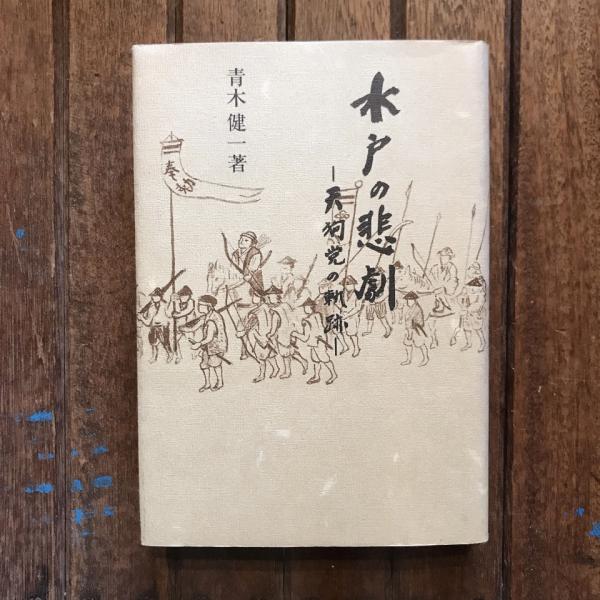 水戸の悲劇
－天狗党の軌跡－
青木健一著
奉勅